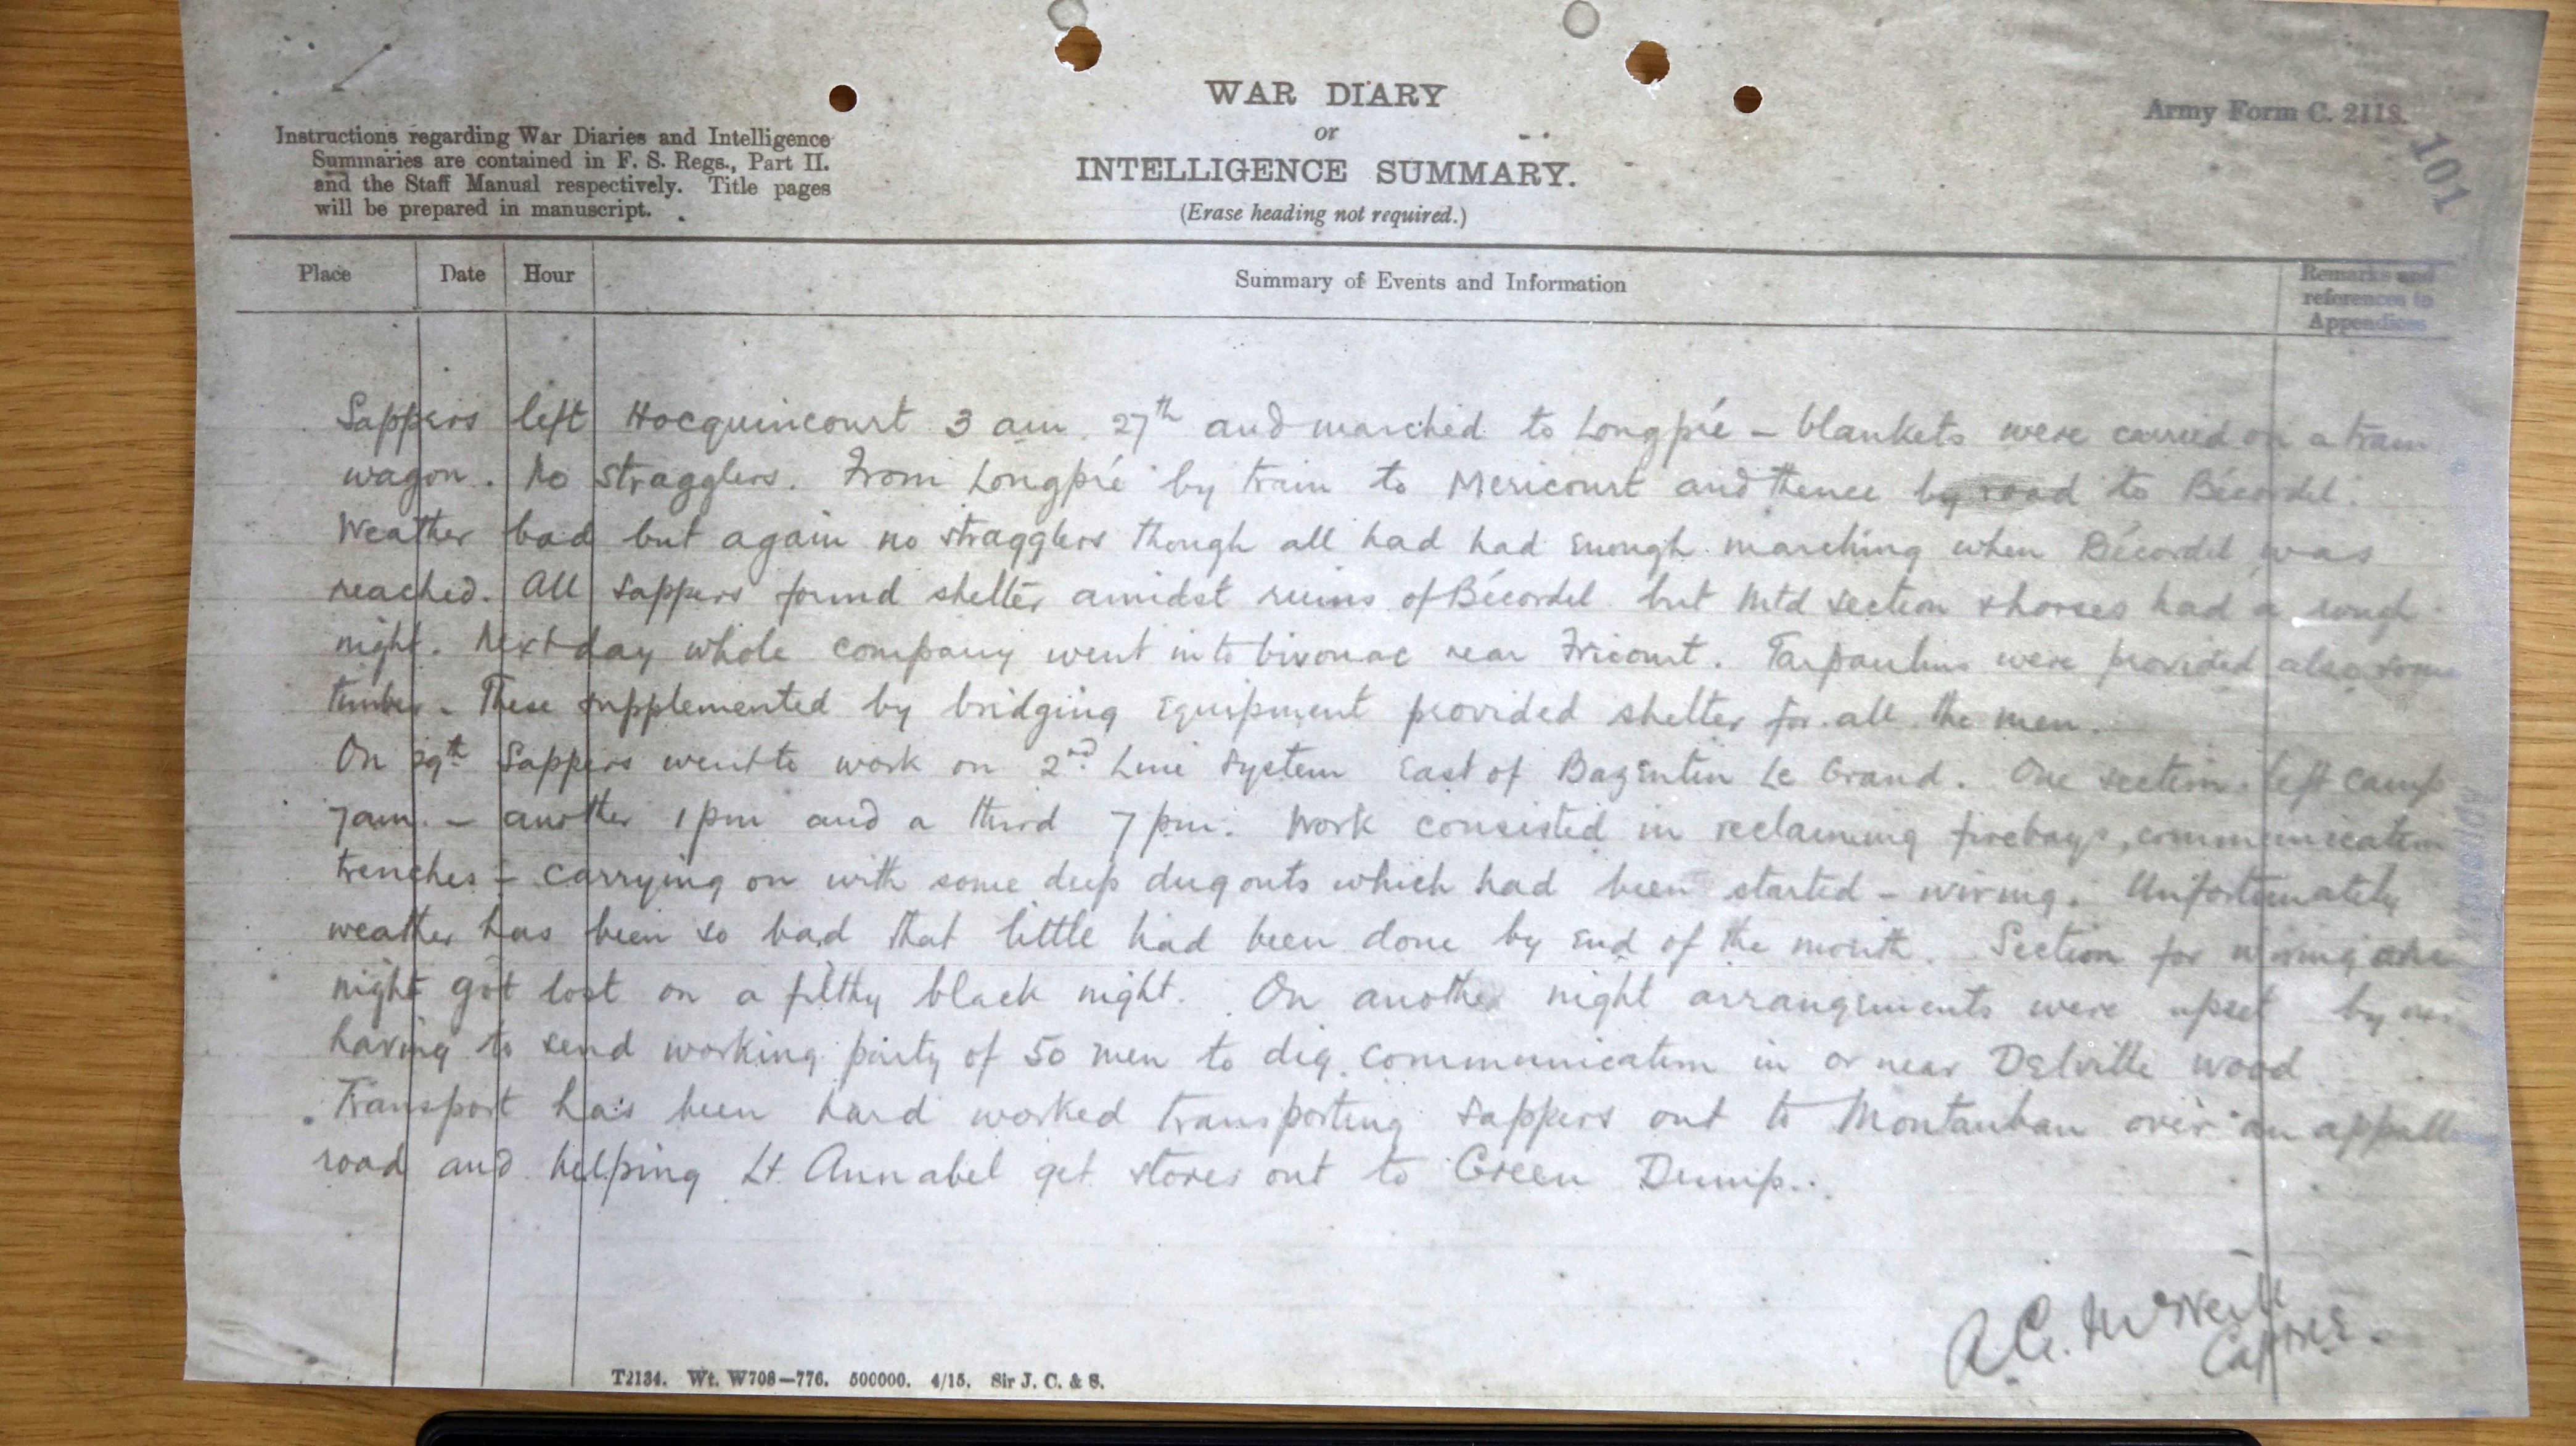 WAR DIARY
or
INTELLIGENCE SUMMARY.
(Erase heading not required.)
Army Form C. 2118.
101
Instructions regarding War Diaries and Intelligence
Summaries are contained in F. S. Regs., Part II.
and the Staff Manual respectively. Title pages
will be prepared in manuscript.
Place Date Hour Summary of Events and Information Remarks and
references to
Appendices
Sappers left Hocquincourt 3 am. 27th and marched to Longpré – blankets were carried on a train
wagon. No stragglers. From Longpré by train to Mericourt and thence by road to Bécordel.
Weather bad but again no stragglers though all had had enough marching when Bécordel was
reached. All sappers found shelter amidst ruins of Bécordel but Mtd section & horses had a rough
night. Next day whole company went into bivouac near Fricourt. Tarpaulins were provided also some
timber – These supplemented by bridging equipment provided shelter for all the men.
On 29th Sappers went to work on 2nd Line System East of Bazentin Le Grand. One section left camp
7am. – another 1 pm and a third 7 pm. Work consisted in reclaiming firebays, communication
trenches – carrying on with some deep dugouts which had been started – wiring. Unfortunately
weather has been so bad that little had been done by end of the month. Section for wiring one
night got lost on a filthy black night. On another night arrangements were upset by
having to send working party of 50 men to dig communication in or near Delville wood
Transport has been hard worked transporting sappers out to Montauban over an
road and helping Lt. Annabel get stores out to Green Dump.
A.G.
Capt RE.
T2134. Wt. W708—776. 500000. 4/15. Sir J. C. & S.